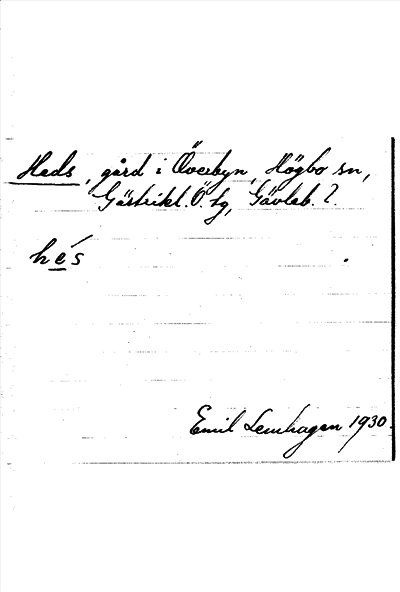 Heds, gård i Överbyn, Högbo sn,
Gästrikl. Ö. tg, Gävleb. l.
hés
Emil Lenhagen 1930.